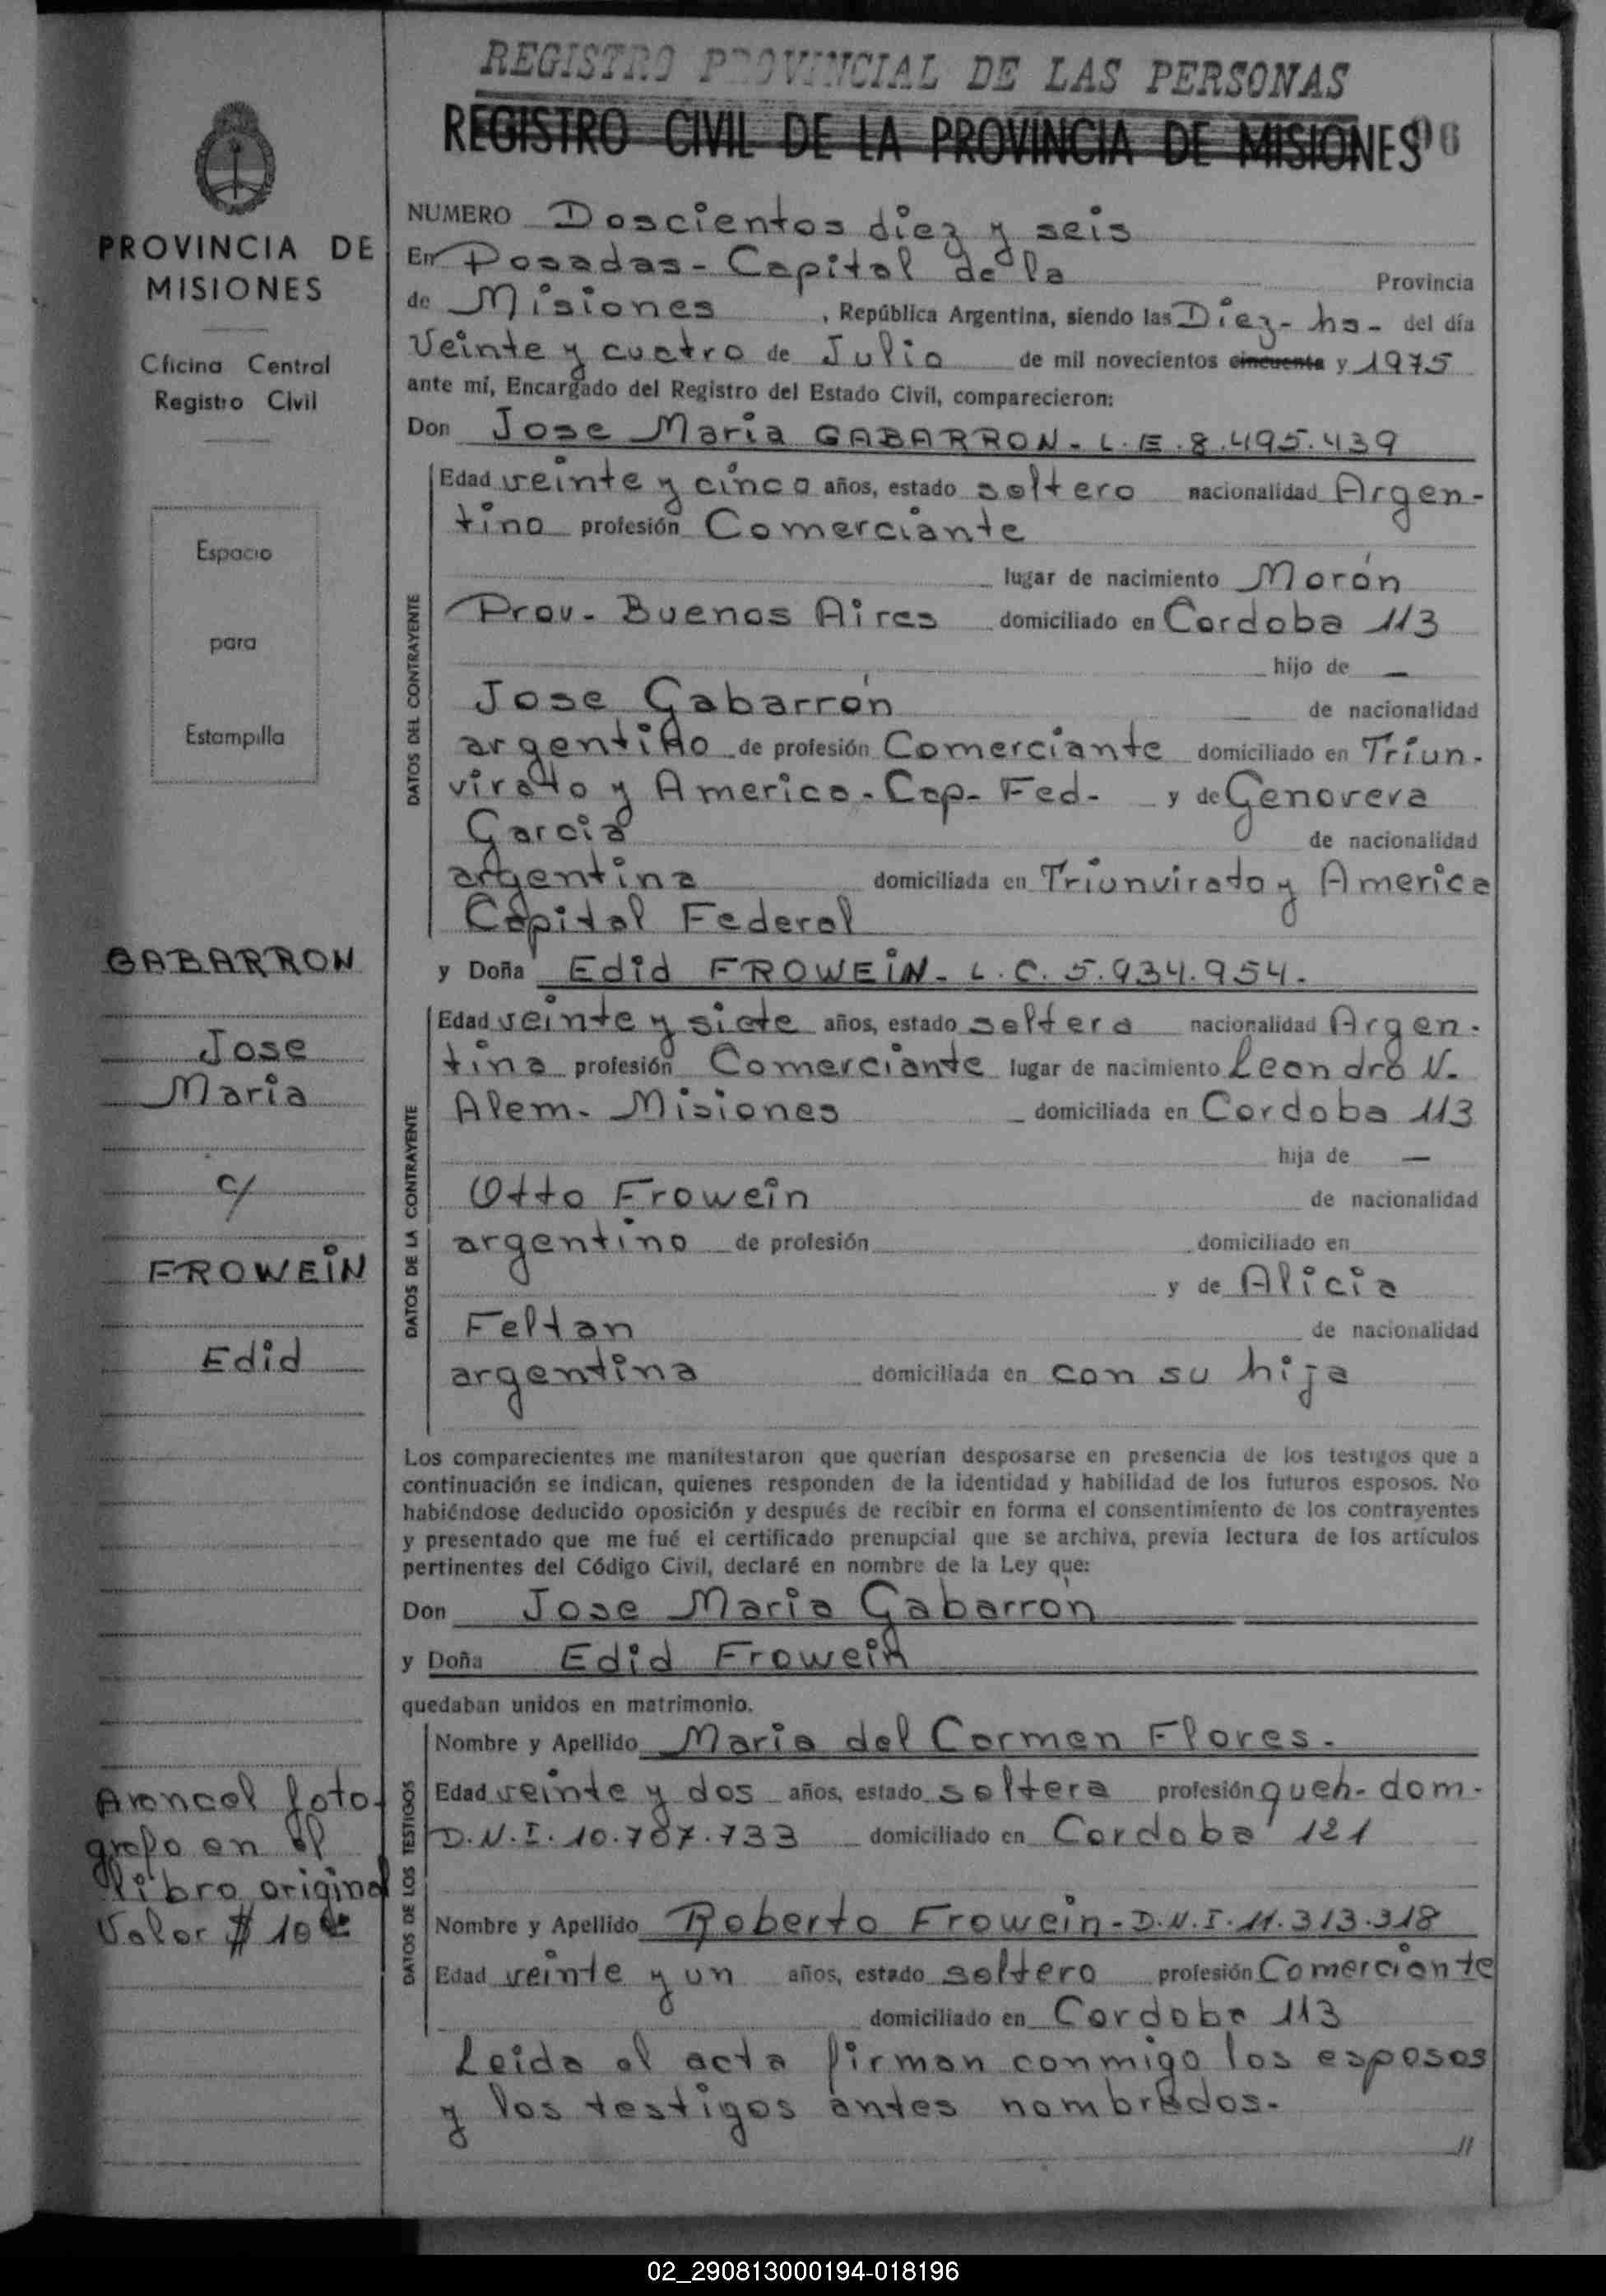 REGISTRO PROVINCIAL DE LAS PERSONAS
REGISTRO CIVIL DE LA PROVINCIA DE MISIONES
PROVINCIA DE
MISIONES
Oficina Central
Registro Civil
Espacio
para
Estampilla
GABARRON
Jose
Maria
c/
FROWEIN
Edid
Arancel foto-
grafo en el
libro original
Valor $ 10
NUMERO Doscientos diez y seis
En Posadas - Capital de la Provincia
de Misiones, República Argentina, siendo las Diez - hs - del día
Veinte y cuatro de Julio de mil novecientos cincuenta y 1975
ante mí, Encargado del Registro del Estado Civil, comparecieron:
Don Jose Maria GABARRON - L.E. 8.495.439
DATOS DEL CONTRAYENTE
Edad veinte y cinco años, estado soltero nacionalidad Argen-
tino profesión Comerciante
lugar de nacimiento Morón
Prov. Buenos Aires domiciliado en Cordoba 113
hijo de —
Jose Gabarrón de nacionalidad
argentino de profesión Comerciante domiciliado en Triun-
virato y America - Cap. Fed. y de Genoveva
Garcia de nacionalidad
argentina domiciliada en Triunvirato y America
Capital Federal
y Doña Edid FROWEIN - L.C. 5.934.954.
DATOS DE LA CONTRAYENTE
Edad veinte y siete años, estado soltera nacionalidad Argen-
tina profesión Comerciante lugar de nacimiento Leandro N.
Alem - Misiones domiciliada en Cordoba 113
hija de —
Otto Frowein de nacionalidad
argentino de profesión domiciliado en
y de Alicia
Feltan de nacionalidad
argentina domiciliada en con su hija
Los comparecientes me manifestaron que querían desposarse en presencia de los testigos que a
continuación se indican, quienes responden de la identidad y habilidad de los futuros esposos. No
habiéndose deducido oposición y después de recibir en forma el consentimiento de los contrayentes
y presentado que me fué el certificado prenupcial que se archiva, previa lectura de los artículos
pertinentes del Código Civil, declaré en nombre de la Ley que:
Don Jose Maria Gabarrón
y Doña Edid Frowein
quedaban unidos en matrimonio.
DATOS DE LOS TESTIGOS
Nombre y Apellido Maria del Carmen Flores.
Edad veinte y dos años, estado soltera profesión queh-dom-
D.N.I. 10.787.733 domiciliado en Cordoba 121
Nombre y Apellido Roberto Frowein - D.N.I. 11.313.318
Edad veinte y un años, estado soltero profesión Comerciante
domiciliado en Cordoba 113
Leida el acta firman conmigo los esposos
y los testigos antes nombrados.-
//
02_290813000194-018196